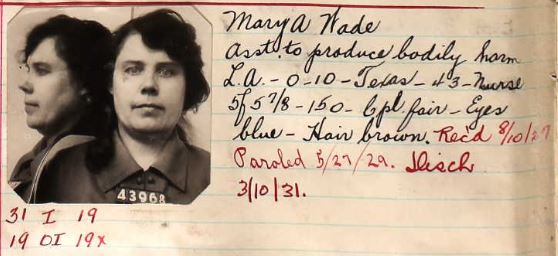 Mary A Wade
Asst. to produce bodily harm
L.A. - 0-10 - Texas - 43 - Nurse
5f 5 7/8 - 150 - Cpl. fair - Eyes
blue - Hair brown. Recd 8/10/27
Paroled 5/27/29. Disch
3/10/31.
43968
31 I 19
19 OI 19x